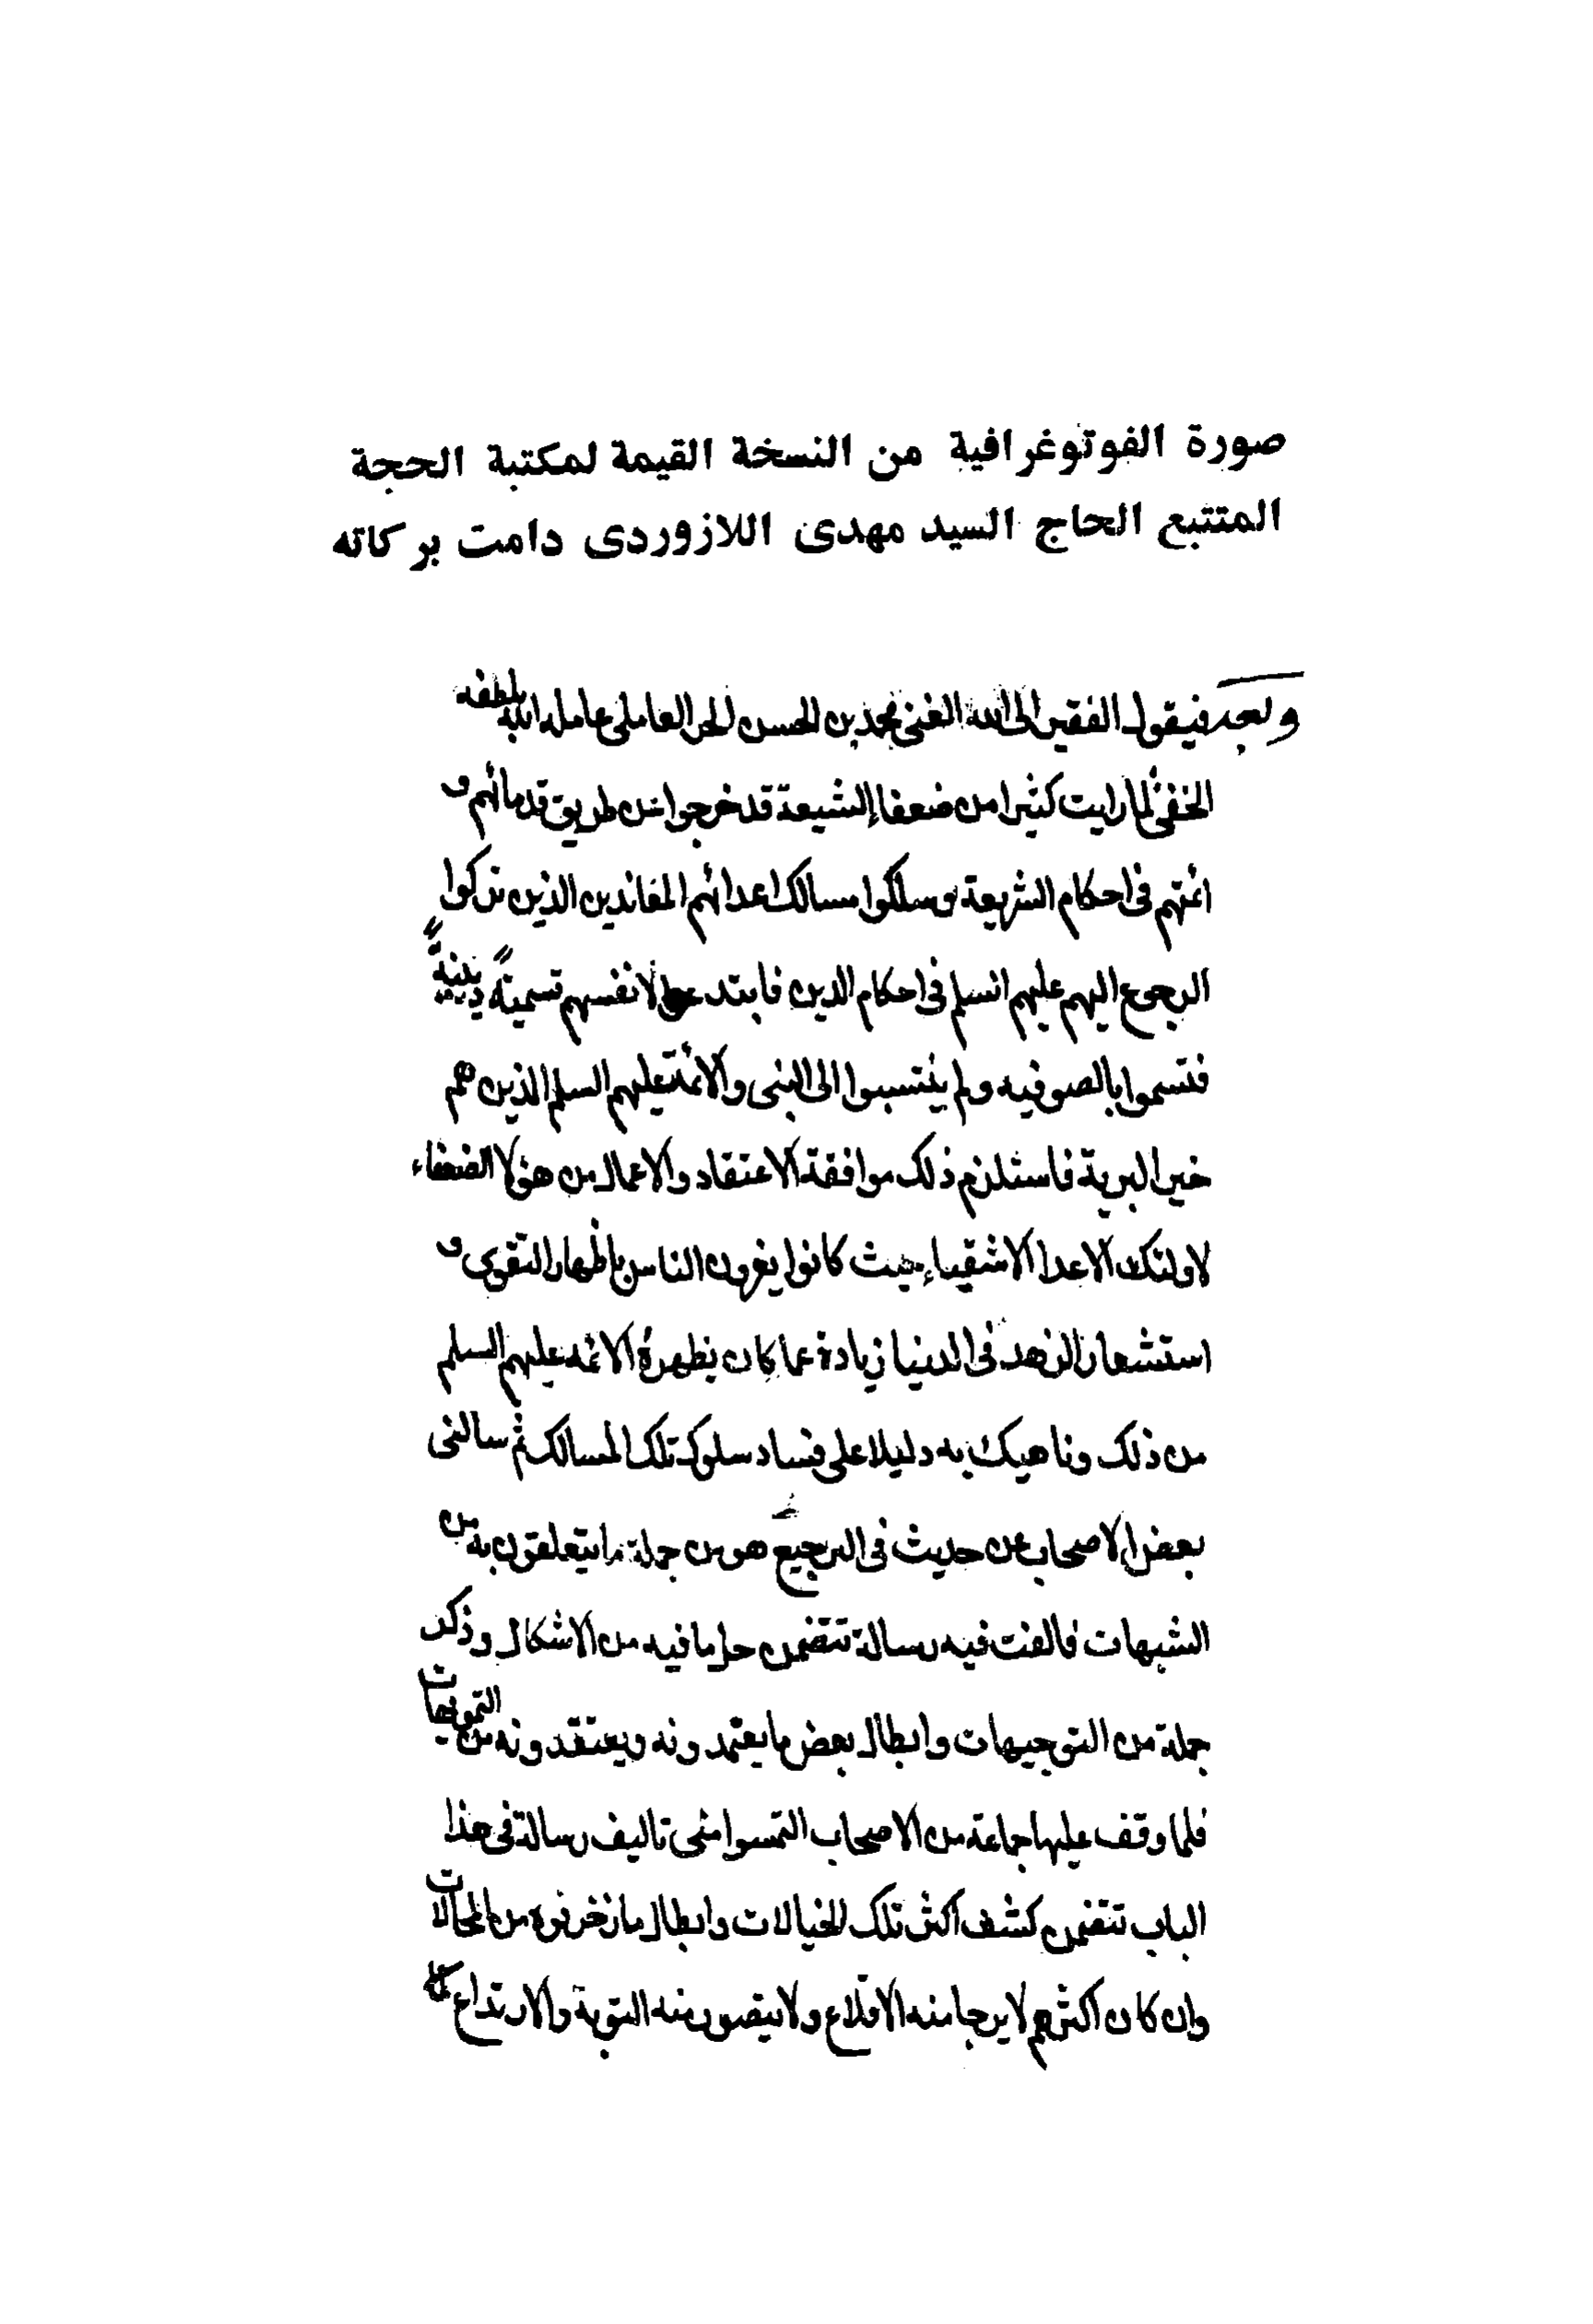 صورة الفوتوغرافية من النسخة القيمة لمكتبة الحجة
المتتبع الحاج السيد مهدى اللازوردى دامت بركاته
وبعد فيقول الفقير الى الله الغنى محمد بن الحسن الحر العاملى عامله الله بلطفه
الخفى لما رايت كثيرا من ضعفاء الشيعة قد خرجوا عن طريق قدمائهم و
ائمتهم فى احكام الشريعة وسلكوا مسالك اعدائهم المعاندين الذين تركوا
الرجوع اليهم عليهم السلم فى احكام الدين فابتدعوا لانفسهم تسمية دينية
فتسموا بالصوفيه ولم ينتسبوا الى النبى والائمة عليهم السلم الذين هم
خير البرية فاستلزم ذلك موافقة الاعتقاد والاعمال من هؤلا الضعفاء
لاولئك الاعدا الاشقياء حيث كانوا يغرون الناس باظهار التقوى و
استشعار الزهد فى الدنيا زيادة عما كان يظهره الائمه عليهم السلم
من ذلك وناهيك به دليلا على فساد سلوك تلك المسالك ثم سالنى
بعض الاصحاب عن حديث فى الترجيع هو من جملة ما يتعلقون به من
الشبهات فالفت فيه رسالة تتضمن حل ما فيه من الاشكال وذكر
جملة من التوجيهات وابطال بعض ما يعتمدونه ويعتقدونه من التمويهات
فلما وقف عليها جماعة من الاصحاب التمسوا منى تاليف رسالة فى هذا
الباب تتضمن كشف اكثر تلك الخيالات وابطال ما زخرفوه من المحالات
وان كان اكثرهم لا يرجا منه الاقلاع ولا يتصور منه التوبة والارتداع